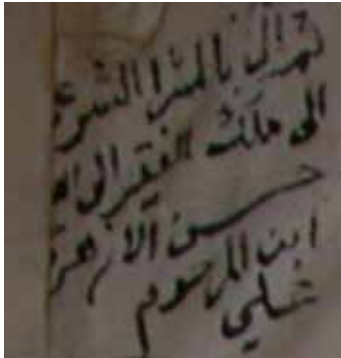 ثم آل بالشرا الشرعي
الى ملك الفقير الى الله
حسن الازهري
ابن المرحوم
شلبي